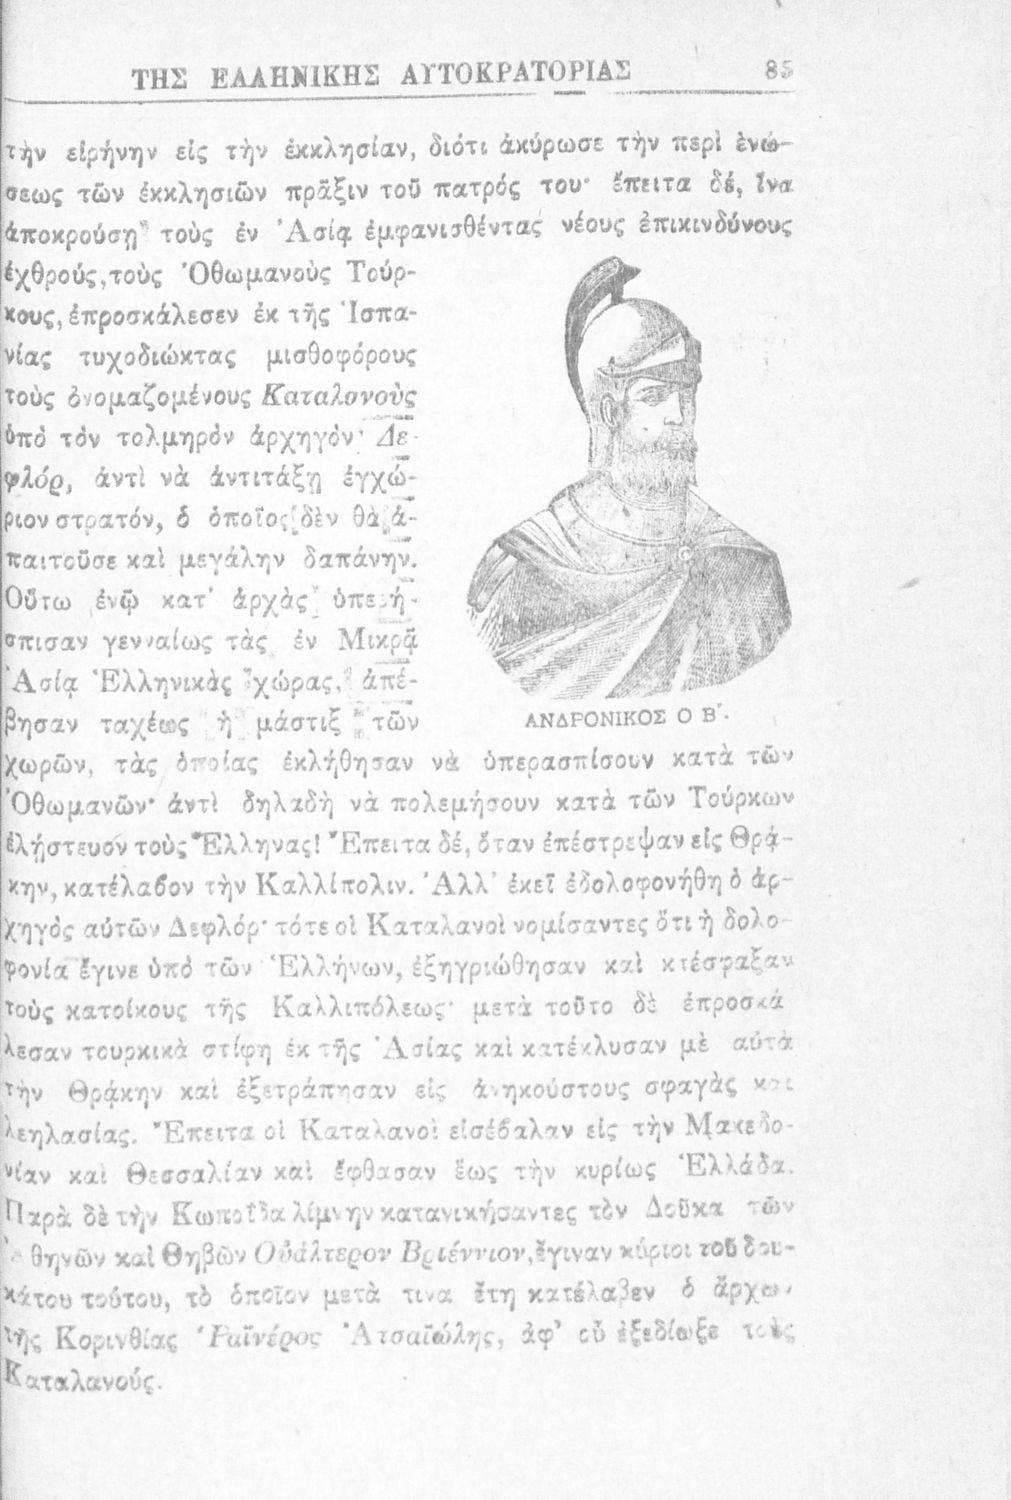 ΤΗΣ ΕΛΛΗΝΙΚΗΣ ΑΥΤΟΚΡΑΤΟΡΙΑΣ 85
τὴν εἰρήνην εἰς τὴν ἐκκλησίαν, διότι ἀκύρωσε τὴν περὶ ἑνώ-
σεως τῶν ἐκκλησιῶν πρᾶξιν τοῦ πατρός του· ἔπειτα δέ, ἵνα
ἀποκρούσῃ τοὺς ἐν Ἀσίᾳ ἐμφανισθέντας νέους ἐπικινδύνους
ἐχθρούς, τοὺς Ὀθωμανοὺς Τούρ-
κους, ἐπροσκάλεσεν ἐκ τῆς Ἱσπα-
νίας τυχοδιώκτας μισθοφόρους
τοὺς ὀνομαζομένους Καταλανοὺς
ὑπὸ τὸν τολμηρὸν ἀρχηγὸν Δε
φλόρ, ἀντὶ νὰ ἀντιτάξῃ ἐγχώ-
ριον στρατόν, ὁ ὁποῖος δὲν θὰ ἀ-
παιτοῦσε καὶ μεγάλην δαπάνην.
Οὕτω ἐνῷ κατ' ἀρχὰς ὑπερή-
σπισαν γενναίως τὰς ἐν Μικρᾷ
Ἀσίᾳ Ἑλληνικὰς χώρας, ἀπέ-
βησαν ταχέως ἡ μάστιξ τῶν
ΑΝΔΡΟΝΙΚΟΣ Ο Β΄.
χωρῶν, τὰς ὁποίας ἐκλήθησαν νὰ ὑπερασπίσουν κατὰ τῶν
Ὀθωμανῶν· ἀντὶ δηλαδὴ νὰ πολεμήσουν κατὰ τῶν Τούρκων
ἐλῄστευον τοὺς Ἕλληνας! Ἔπειτα δέ, ὅταν ἐπέστρεψαν εἰς Θρᾴ-
κην, κατέλαβον τὴν Καλλίπολιν. Ἀλλ' ἐκεῖ ἐδολοφονήθη ὁ ἀρ-
χηγὸς αὐτῶν Δεφλόρ· τότε οἱ Καταλανοὶ νομίσαντες ὅτι ἡ δολο-
φονία ἔγινε ὑπὸ τῶν Ἑλλήνων, ἐξηγριώθησαν καὶ κτέσφαξαν
τοὺς κατοίκους τῆς Καλλιπόλεως· μετὰ τοῦτο δὲ ἐπροσκά
λεσαν τουρκικὰ στίφη ἐκ τῆς Ἀσίας καὶ κατέκλυσαν μὲ αὐτὰ
τὴν Θρᾴκην καὶ ἐξετράπησαν εἰς ἀνηκούστους σφαγὰς καὶ
λεηλασίας. Ἔπειτα οἱ Καταλανοὶ εἰσέβαλαν εἰς τὴν Μακεδο-
νίαν καὶ Θεσσαλίαν καὶ ἔφθασαν ἕως τὴν κυρίως Ἑλλάδα.
Παρὰ δὲ τὴν Κωπαΐδα λίμνην κατανικήσαντες τὸν Δοῦκα τῶν
Ἀθηνῶν καὶ Θηβῶν Οὐάλτερον Βριέννιον, ἔγιναν κύριοι τοῦ δου-
κάτου τούτου, τὸ ὁποῖον μετὰ τινα ἔτη κατέλαβεν ὁ ἄρχων
τῆς Κορινθίας Ῥαϊνέρος Ἀτσαϊώλης, ἀφ' οὗ ἐξεδίωξε τοὺς
Καταλανούς.